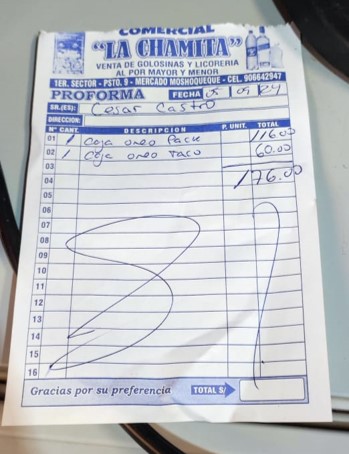 COMERCIAL
"LA CHAMITA"
VENTA DE GOLOSINAS Y LICORERIA
AL POR MAYOR Y MENOR
1ER. SECTOR - PSTO. 9 - MERCADO MOSHOQUEQUE - CEL. 906642947
PROFORMA FECHA 05 09 24
SR.(ES): Cesar Castro
DIRECCION:
Nº CANT. DESCRIPCION P. UNIT. TOTAL
01 1 Caja oreo Pack 116.00
02 1 Caja oreo Taco 60.00
03
04 176.00
05
06
07
08
09
10
11
12
13
14
15
16
Gracias por su preferencia TOTAL S/